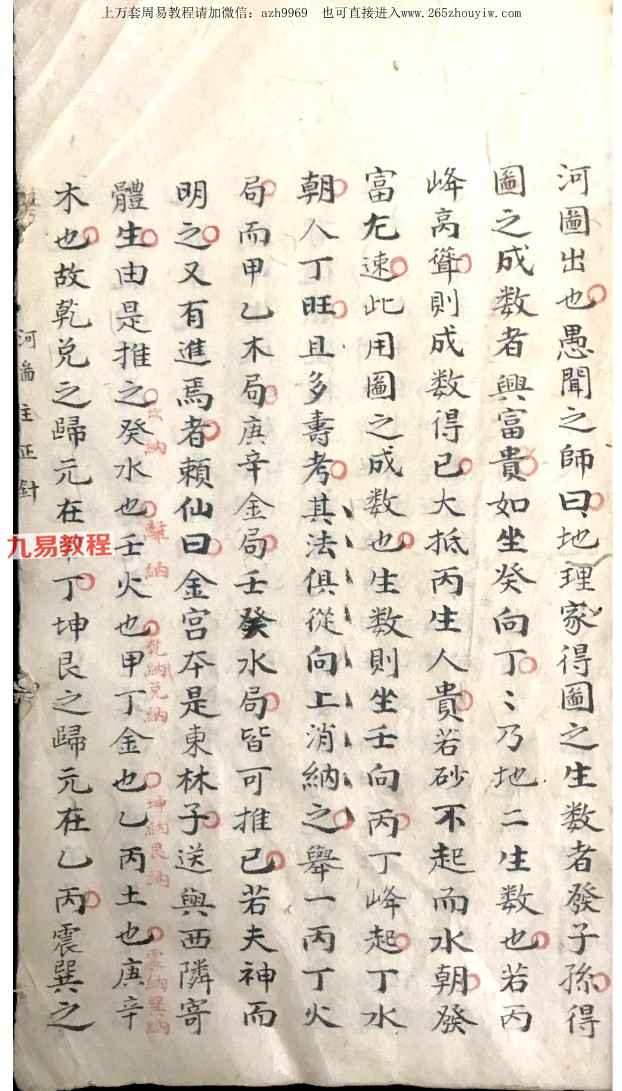 上万套周易教程请加微信：azh9969 也可直接进入www.265zhouyiw.com
河圖出也愚聞之師曰地理家得圖之生數者發子孫得
圖之成數者興富貴如坐癸向丁〻乃地二生數也若丙
峰高聳則成數得已大抵丙生人貴若砂不起而水朝發
富尤速此用圖之成數也生數則坐壬向丙丁峰起丁水
朝人丁旺且多壽考其法俱從向上消納之舉一丙丁火
局而甲乙木局庚辛金局壬癸水局皆可推已若夫神而
明之又有進焉者賴仙曰金宮夲是東林子送與西隣寄
體生由是推之癸水也壬火也甲丁金也乙丙土也庚辛
坎納 離納 乾納兌納 坤納艮納 震納巽納
木也故乾兌之歸元在丁坤艮之歸元在乙丙震巽之
河圖主正針
九易教程